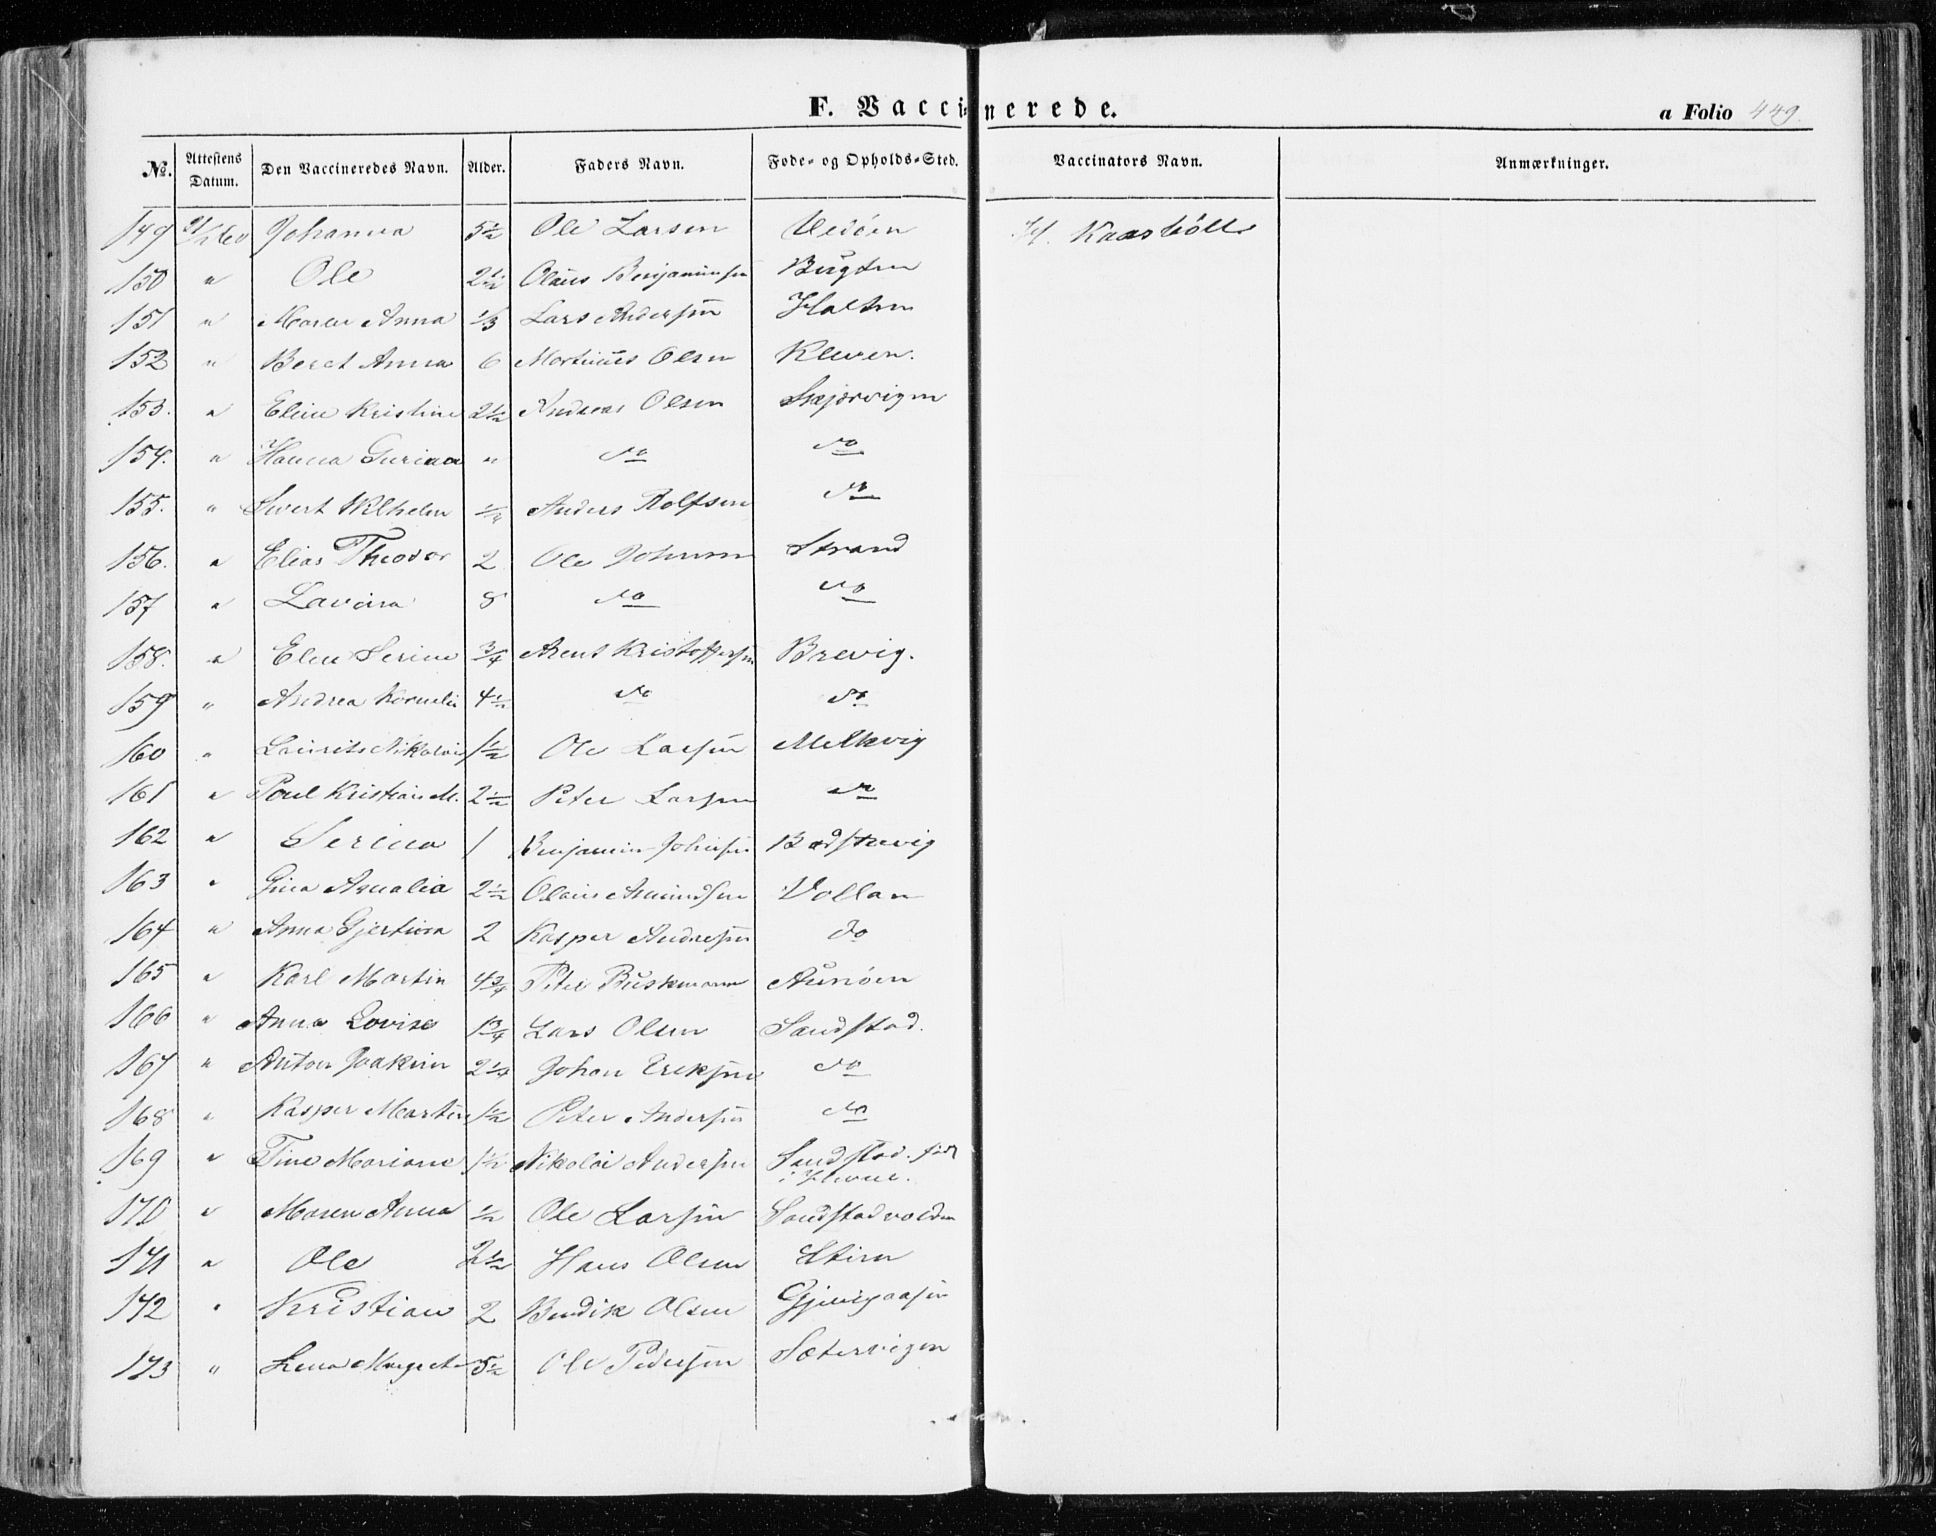 F. Vaccinerede.
a Folio 449.
No. Attestens Datum. Den Vaccineredes Navn. Alder. Faders Navn. Føde- og Opholds-Sted. Vaccinators Navn. Anmærkninger.
149 Johanna 5½ Ole Larsen H.
150 " Ole 2½ Olaus Benjaminsen Bugten
151 " Maren Anna ⅓ Lars Andersen Holten
152 " Beret Anna 6 Martinus Olsen Kleven.
153. " Eline Kristine 2½ Andreas Olsen Skjærvigen
154. " Hanna Gurina " do do
155. " Sivert Vilhelm Anders Rolfsen do
156. " Elias Theodor 2 Ole Johnsen Strand
157 " Lavina 8 do do
158. " Elen Serine ¾ Arent Kristoffersen Brevig.
159 " Andrea Kornelia 4½ do do
160 " Laurits Nikolai 1½ Ole Larsen Melkvig
161 " Poul Kristian M. 2½ Peter Larsen do
162 " Serina 1 Benjamin Johnsen Badstuvig
163 " Gina Amalia 2½ Olaus Amundsen Vollan
164 " Anna Gjertina 2 Kasper Andersen do
165 " Karl Martin 4¾ Peter Buskmann Aunøen
166 " Anna Lovise 1¾ Lars Olsen Sandstad.
167 " Anton Joakim 2¼ Johan Eriksen do
168 " Kasper Martin 1½ Peter Andersen do
169 " Tine Mariane 1½ Nikolai Andersen Sandstad.
170 " Maren Anna ½ Ole Larsen Sandstadvolden
171 " Ole 2½ Hans Olsen
172 " Kristian 2 Bendik Olsen Gjengaasen
173 " Lena Margreta 5½ Ole Pedersen Sætervigen